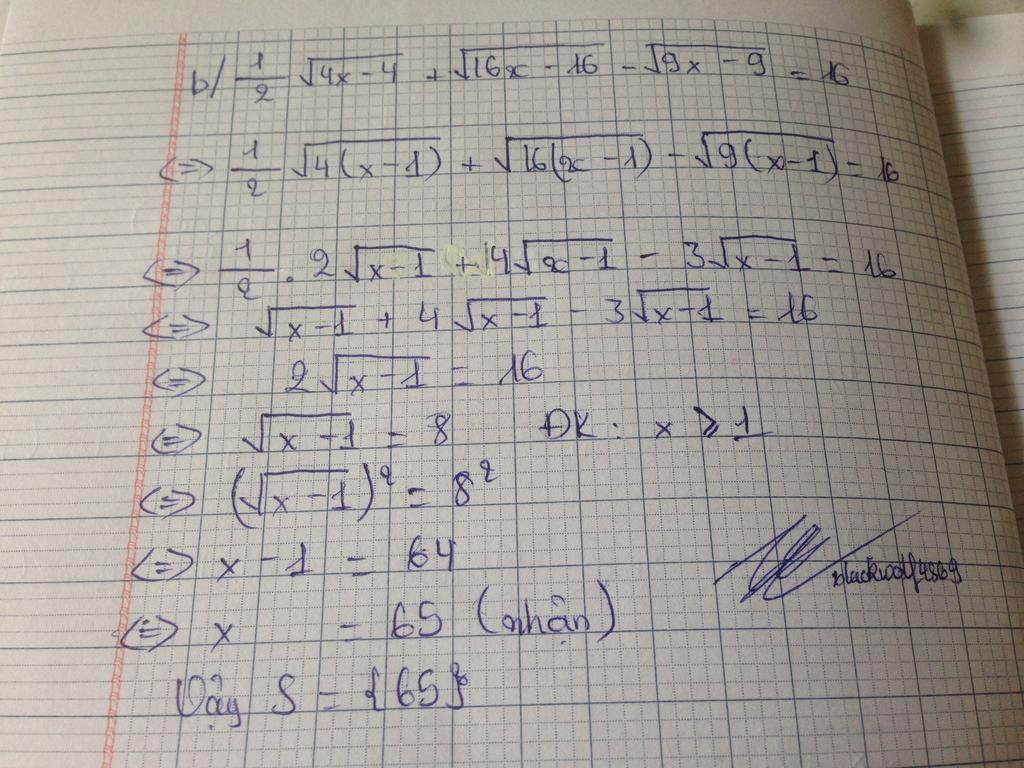 b/ 1/2 √(4x - 4) + √(16x - 16) - √(9x - 9) = 16
<=> 1/2 √(4(x-1)) + √(16(x-1)) - √(9(x-1)) = 16
<=> 1/2 . 2√(x-1) + 4√(x-1) - 3√(x-1) = 16
<=> √(x-1) + 4√(x-1) - 3√(x-1) = 16
<=> 2√(x-1) = 16
<=> √(x-1) = 8 ĐK: x ≥ 1
<=> (√(x-1))² = 8²
<=> x - 1 = 64
<=> x = 65 (nhận)
Vậy S = {65}